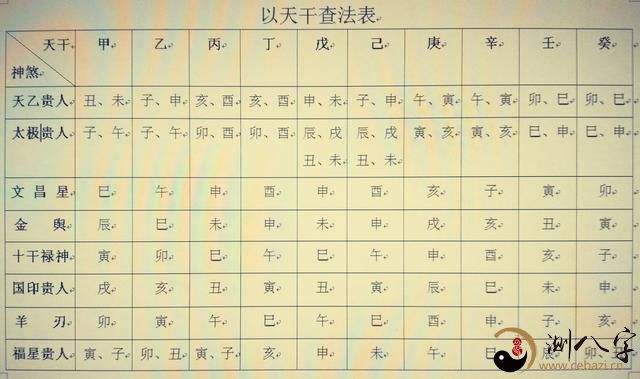 以天干查法表
天干 甲 乙 丙 丁 戊 己 庚 辛 壬 癸
神煞
天乙贵人 丑、未 子、申 亥、酉 亥、酉 申、未 子、申 午、寅 午、寅 卯、巳 卯、巳
太极贵人 子、午 子、午 卯、酉 卯、酉 辰、戌 辰、戌 寅、亥 寅、亥 巳、申 巳、申
丑、未 丑、未
文昌星 巳 午 申 酉 申 酉 亥 子 寅 卯
金舆 辰 巳 未 申 未 申 戌 亥 丑 寅
十干禄神 寅 卯 巳 午 巳 午 申 酉 亥 子
国印贵人 戌 亥 丑 寅 丑 寅 辰 巳 未 申
羊刃 卯 寅 午 巳 午 巳 酉 申 子 亥
福星贵人 寅、子 卯、丑 寅、子 亥 申 未 午 巳 辰
测八字
www.debazi.cn